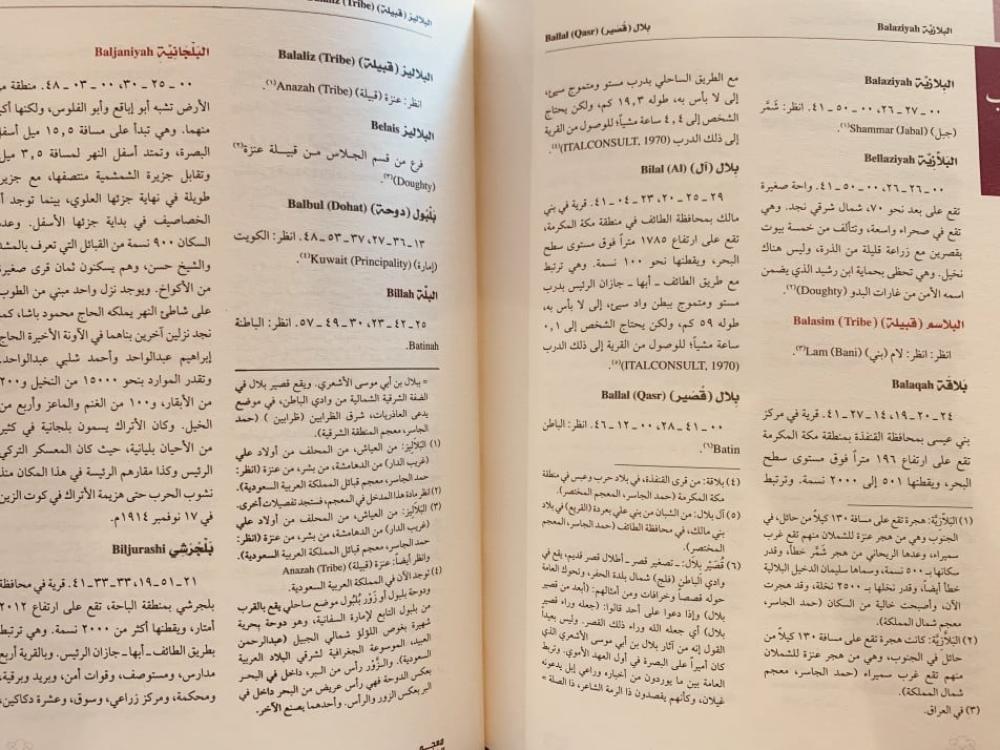 البلازيّة Balaziyah
بلال (قُصَير) Ballal (Qasr)
البلازيّة Balaziyah
٠٠-٢٧-٢٦، ٠٠-٥٠-٤١. انظر: شَمَّر
(جبل) Shammar (Jabal)(١).
البَلَازِيَّة Bellaziyah
٠٠-٢٦-٢٦، ٠٠-٥٠-٤١. واحة صغيرة
تقع على بعد نحو ٧٠، شمال شرقي نجد. وهي
تقع في صحراء واسعة، وتتألف من خمسة بيوت
بقصرين مع زراعة قليلة من الذرة، وليس هناك
نخيل. وهي تحظى بحماية ابن رشيد الذي يضمن
اسمه الأمن من غارات البدو (Doughty)(٢).
البلاسم (قبيلة) Balasim (Tribe)
انظر: انظر: لام (بني) Lam (Bani)(٣).
بَلاقَة Balaqah
٢٤-٢٠-١٩، ١٤-٢٧-٤١. قرية في مركز
بني عيسى بمحافظة القنفذة بمنطقة مكة المكرمة
تقع على ارتفاع ١٩٦ متراً فوق مستوى سطح
البحر، ويقطنها ٥٠١ إلى ٢٠٠٠ نسمة. وترتبط
(١) البَلَازِيَّة: هجرة تقع على مسافة ١٣٠ كيلاً من حائل، في
الجنوب وهي من هجر عنزة للشملان منهم تقع غرب
سميراء، وعدها الريحاني من هجر شَمَّر خطأ، وقدر
سكانها بـ ٥٠٠ نسمة، وسماها سليمان الدخيل البلالية
خطأ أيضاً، وقدر نخلها بـ ٢٥٠٠ نخلة، وقد هجرت
الآن، وأصبحت خالية من السكان (حمد الجاسر،
معجم شمال المملكة).
(٢) البَلَازِيَّة: كانت هجرة تقع على مسافة ١٣٠ كيلاً من
حائل في الجنوب، وهي من هجر عنزة للشملان
منهم تقع غرب سميراء (حمد الجاسر، معجم
شمال المملكة).
(٣) في العراق.
مع الطريق الساحلي بدرب مستو ومتموج سيئ،
إلى لا بأس به، طوله ١٩,٣ كم، ولكن يحتاج
الشخص إلى ٤,٤ ساعة مشياً؛ للوصول من القرية
إلى ذلك الدرب (ITALCONSULT, 1970)(٤).
بِلال (آل) Bilal (Al)
٢٩-٢٥-٢٠، ٢٣-٠٤-٤١. قرية في بني
مالك بمحافظة الطائف في منطقة مكة المكرمة،
تقع على ارتفاع ١٧٨٥ متراً فوق مستوى سطح
البحر، ويقطنها نحو ١٠٠ نسمة. وهي ترتبط
مع طريق الطائف - أبها - جازان الرئيس بدرب
مستو ومتموج ببطن واد سيئ، إلى لا بأس به،
طوله ٥٩ كم، ولكن يحتاج الشخص إلى ٠,١
ساعة مشياً؛ للوصول من القرية إلى ذلك الدرب
(ITALCONSULT, 1970)(٥).
بِلال (قُصَير) Ballal (Qasr)
٠٠-٤١-٢٨، ٠٠-١٢-٤٦. انظر: الباطن
Batin(٦).
(٤) بلاقة: من قرى القنفذة، في بلاد حرب وعبس في منطقة
مكة المكرمة (حمد الجاسر، المعجم المختصر).
(٥) آل بلال: من الشبان من بني علي بعردة (القريع) في بلاد
بني مالك، في محافظة الطائف (حمد الجاسر، المعجم
المختصر).
(٦) قُصَيْر بِلال: - تصغير قصر - أطلال قصر قديم، يقع في
وادي الباطن (فلج) شمال بلدة الحفر، ونحوك العامة
حوله قصصاً وخرافات ومن أمثالهم: (أبعد من قصير
بلال) وإذا دعوا على أحد قالوا: (جعله وراء قصير
بلال) أي جعله الله وراء ذلك القصر. وليس بعيداً
القول إنه من آثار بلال بن أبي موسى الأشعري الذي
كان أميراً على البصرة في أول العهد الأموي. وتربط
العامة بين ما يوردون من أخباره وراعي إبل يدعونه
غيلان، وكأنهم يقصدون ذا الرمة الشاعر، ذا الصلة =
البلاليز (قبيلة) Balaliz (Tribe)
البلاليز (قبيلة) Balaliz (Tribe)
انظر: عنزة (قبيلة) Anazah (Tribe)(١).
البلاليز Belais
فرع من قسم الجلاس من قبيلة عنزة(٢)
(Doughty)(٣).
بَلْبُول (دوحة) Balbul (Dohat)
١٣-٣٦-٢٧، ٣٧-٥٣-٤٨. انظر: الكويت
(إمارة) Kuwait (Principality)(٤).
البلّة Billah
٢٥-٤٢-٢٣، ٣٠-٤٩-٥٧. انظر: الباطنة
Batinah.
= بلال بن أبي موسى الأشعري. ويقع قصير بلال في
الضفة الشرقية الشمالية من وادي الباطن، في موضع
يدعى العاذريات، شرق الظرابين (الظرابين) (حمد
الجاسر، معجم المنطقة الشرقية).
(١) البَلَاليْز: من العياش، من المحلف من أولاد علي
(غريب الدار) من الدهامشة، من بشر، من عنزة (انظر:
حمد الجاسر، معجم قبائل المملكة العربية السعودية).
(٢) انظر مادة هذا المدخل في المعجم، فستجد تفصيلات أخرى.
(٣) البَلَاليْز: من العياش، من المحلف من أولاد علي
(غريب الدار) من الدهامشة، من بشر، من عنزة (انظر:
حمد الجاسر، معجم قبائل المملكة العربية السعودية).
وانظر أيضاً: عنزة (قبيلة) Anazah (Tribe)
(٤) توجد الآن في المملكة العربية السعودية.
ودوحة بلبول أو زَوْر بُلْبُول موضع ساحلي يقع بالقرب
من بلبول التابع لإمارة السفانية، وهو دوحة بحرية
شهيرة بغوص اللؤلؤ شمالي الجبيل (عبدالرحمن
العبيد، الموسوعة الجغرافية لشرقي البلاد العربية
السعودية). والزُّوْر رأس من البر، داخل في البحر
بعكس الدوحة فهي رأس عريض من البحر داخل في
البر بعكس الزور والرأس. وأحدهما يصنع الآخر.
البَلْجَانِيّة Baljaniyah
٠٠-٢٥-٣٠، ٠٠-٠٣-٤٨. منطقة من
الأرض تشبه أبو إباقع وأبو الفلوس، ولكنها أكبر
منهما. وهي تبدأ على مسافة ١٥,٥ ميل أسفل
البصرة، وتمتد أسفل النهر لمسافة ٣,٥ ميل
وتقابل جزيرة الشمشمية منتصفها، مع جزيرة
طويلة في نهاية جزئها العلوي، بينما توجد
الخصاصيف في بداية جزئها الأسفل. وعدد
السكان ٩٠٠ نسمة من القبائل التي تعرف
والشيخ حسن، وهم يسكنون ثمان قرى صغيرة
من الأكواخ. ويوجد نزل واحد مبني من الطوب
على شاطئ النهر يملكه الحاج محمود باشا، كما
نجد نزلين آخرين بناهما في الآونة الأخيرة الحاج
إبراهيم عبدالواحد وأحمد شلبي عبدالواحد.
وتقدر الموارد بنحو ١٥٠٠٠ من النخيل و٢٠٠
من الأبقار، و١٠٠ من الغنم والماعز وأربع من
الخيل. وكان الأتراك يسمون بلجانية في كثير
من الأحيان بليانية، حيث كان المعسكر التركي
الرئيس وكذا مقارهم الرئيسة في هذا المكان منذ
نشوب الحرب حتى هزيمة الأتراك في كوت الزين
في ١٧ نوفمبر ١٩١٤م.
بَلْجُرَشِي Biljurashi
٢١-٥١-١٩، ٣٣-٣٣-٤١. قرية في محافظة
بلجرشي بمنطقة الباحة، تقع على ارتفاع ٢٠١٢
أمتار، ويقطنها أكثر من ٢٠٠٠ نسمة. وهي ترتبط
بطريق الطائف - أبها - جازان الرئيس. وبالقرية أربع
مدارس، ومستوصف، وقوات أمن، وبريد وبرقية،
ومحكمة، ومركز زراعي، وسوق، وعشرة دكاكين،